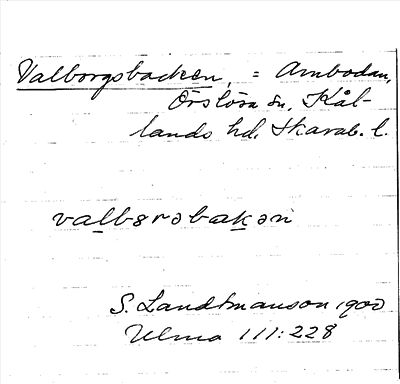 Valborgsbacken, = Ambodan,
Örslösa sn, Kål-
lands hd, Skarab. l.
valbərəbakən
S. Landtmanson 1900
Ulma 111:228